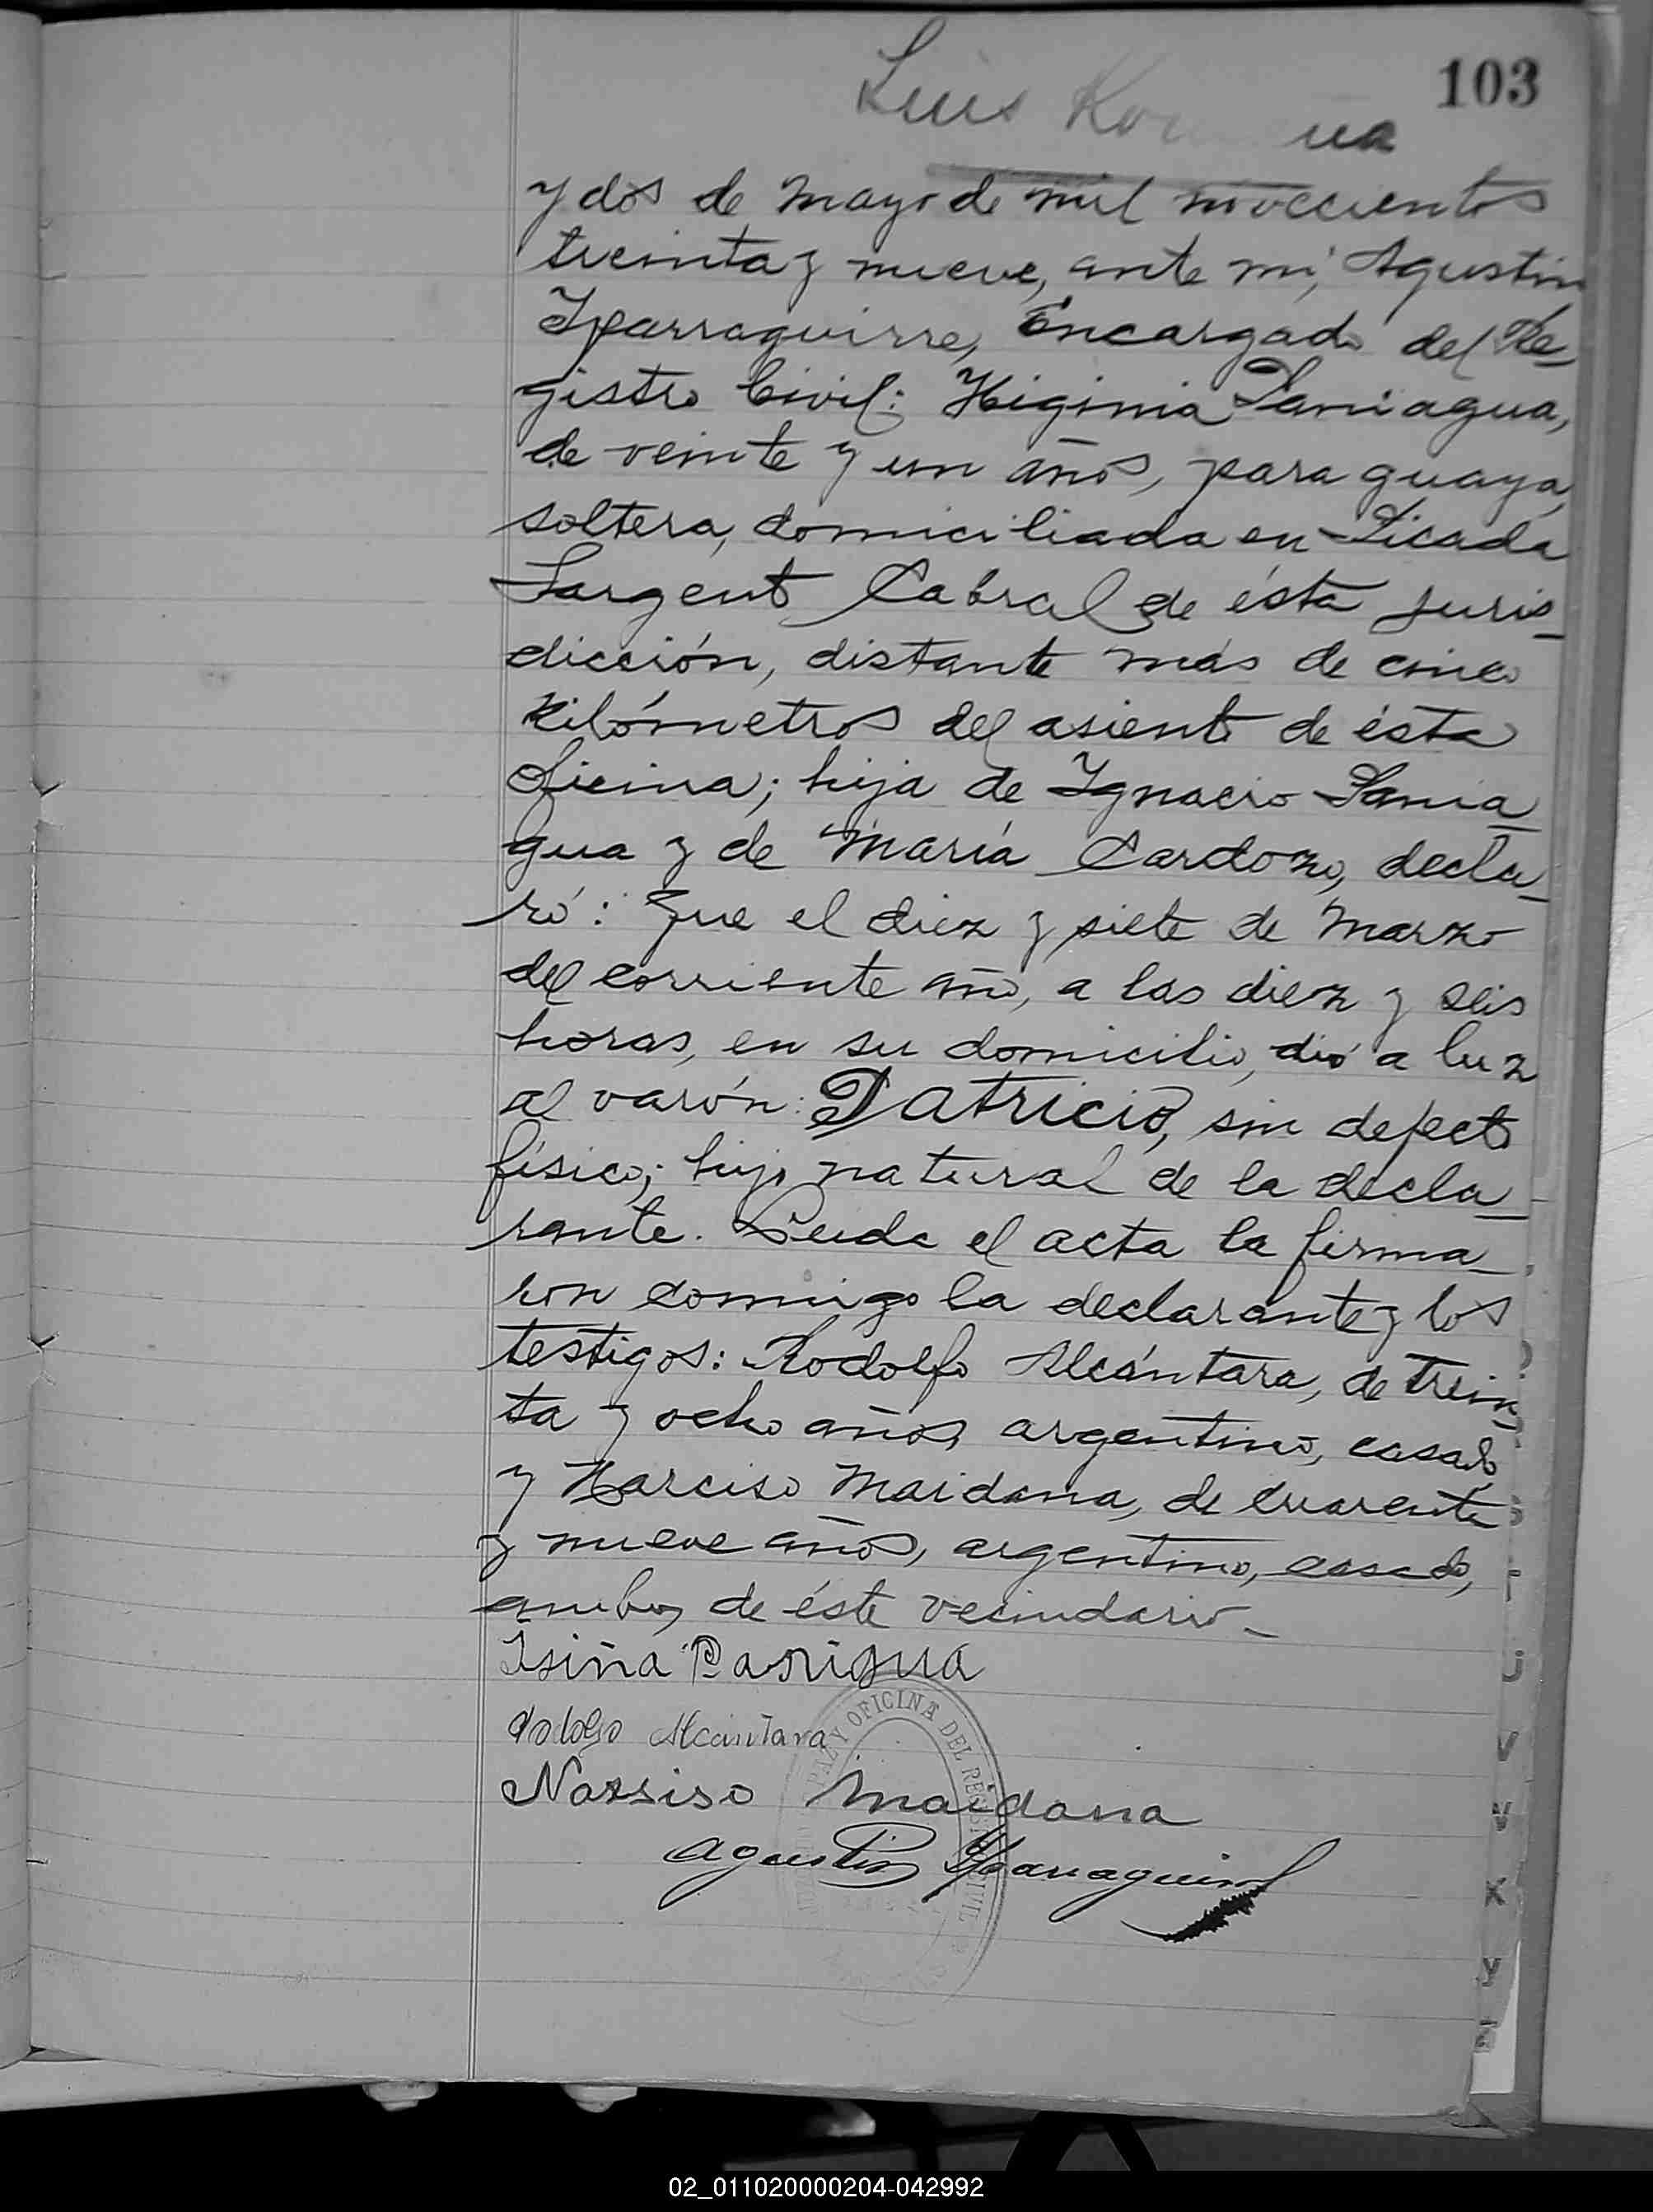 103
Luis
y dos de mayo de mil novecientos
treinta y nueve, ante mí, Agustin
Yparraguirre, Encargado del Re_
gistro Civil: Higinia Paniagua,
de veinte y un años, paraguaya,
soltera, domiciliada en Picada
Sargento Cabral de ésta juris_
dicción, distante más de cinco
kilómetros del asiento de ésta
oficina; hija de Ygnacio Pania_
gua y de María Cardozo, decla_
ró: Que el diez y siete de marzo
del corriente año, a las diez y seis
horas, en su domicilio, dió a luz
al varón: Patricio, sin defecto
físico; hijo natural de la decla_
rante. Leida el acta la firma_
ron conmigo la declarante y los
testigos: Rodolfo Alcántara, de trein_
ta y ocho años, argentino, casado
y Narciso Maidana, de cuarenta
y nueve años, argentino, casado,
ambos de éste vecindario_
Isiña Panigua
Alcantara
Narsiso Maidana
Agustin Yparraguirre
PAZ Y OFICINA DEL REGISTRO CIVIL
02_011020000204-042992